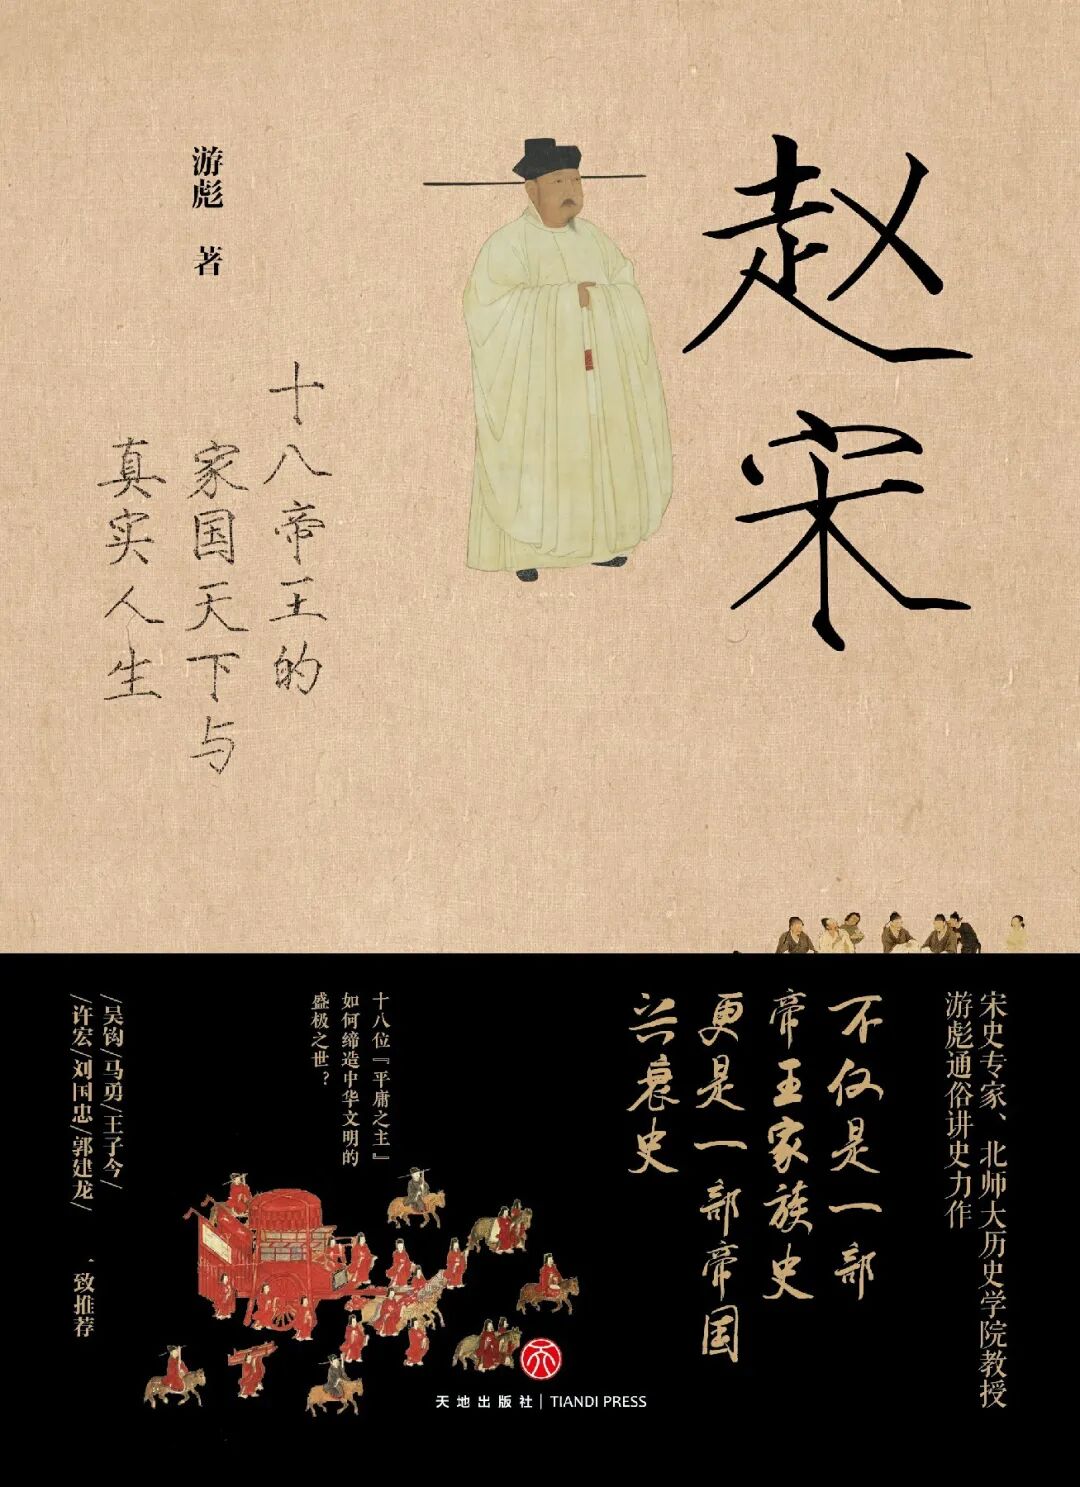 赵宋
游彪 著
十八帝王的
家国天下与
真实人生
宋史专家、北师大历史学院教授
游彪通俗讲史力作
不仅是一部
帝王家族史
更是一部帝国
兴衰史
十八位『平庸之主』
如何缔造中华文明的
盛极之世？
/吴钩/马勇/王子今/
/许宏/刘国忠/郭建龙/
一致推荐
天地出版社 | TIANDI PRESS